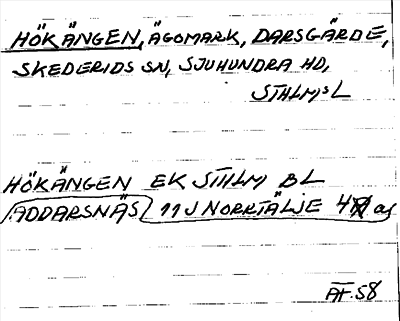 HÖKÄNGEN, ÄGOMARK, DARSGÄRDE,
SKEDERIDS SN, SJUHUNDRA HD,
STHLMS L
HÖKÄNGEN EK STHLM BL
ADDARSNÄS 11J NORRTÄLJE 4
AF. 58